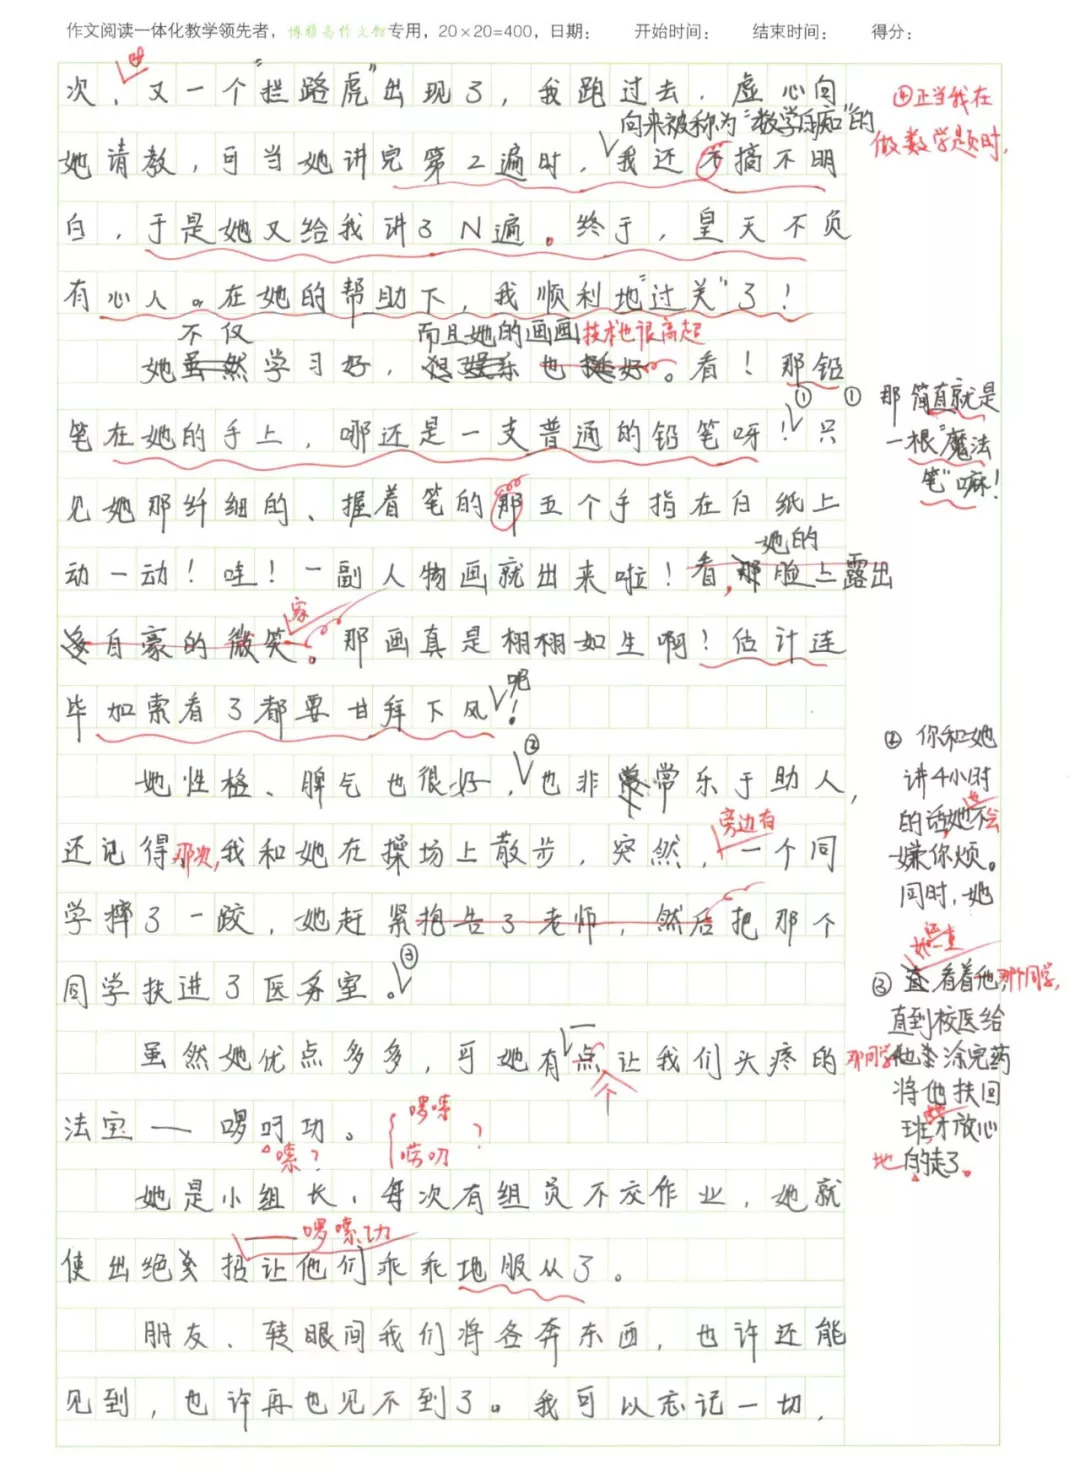 作文阅读一体化教学领先者，博雅高作文馆专用，20×20=400，日期：　开始时间：　结束时间：　得分：
④
次，又一个"拦路虎"出现了，我跑过去，虚心向
④正当我在
做数学题时，
向来被称为"数学白痴"的
她请教，可当她讲完第2遍时，我还不搞不明
白，于是她又给我讲了N遍。终于，皇天不负
有心人。在她的帮助下，我顺利地"过关"了！
不仅 而且她的画画技术也很高超
她虽然学习好，但娱乐也挺好。看！那铅
① ① 那简直就是
一根"魔法
笔"嘛！
笔在她的手上，哪还是一支普通的铅笔呀！只
见她那纤细的、握着笔的那五个手指在白纸上
她的
动一动！哇！一副人物画就出来啦！看，那脸上露出
容
自豪的微笑。那画真是栩栩如生啊！估计连
毕加索看了都要甘拜下风吧！
②
② 你和她
讲4小时
的话，她也不会
嫌你烦。
同时，她
她性格、脾气也很好，也非常乐于助人，
旁边有
还记得那次，我和她在操场上散步，突然，一个同
学摔了一跤，她赶紧抱告了老师，然后把那个
③
同学扶进了医务室。
她还一直
③ 直看着他，那个同学，
直到校医给
那同学他涂完药
将他扶回
班，她才放心
地的走了。
一
虽然她优点多多，可她有点让我们头疼的
个
法宝——啰叨功。
嗦？
啰嗦
唠叨
？
她是小组长，每次有组员不交作业，她就
——啰嗦功
使出绝招让他们乖乖地服从了。
朋友、转眼间我们将各奔东西，也许还能
见到，也许再也见不到了。我可以忘记一切，